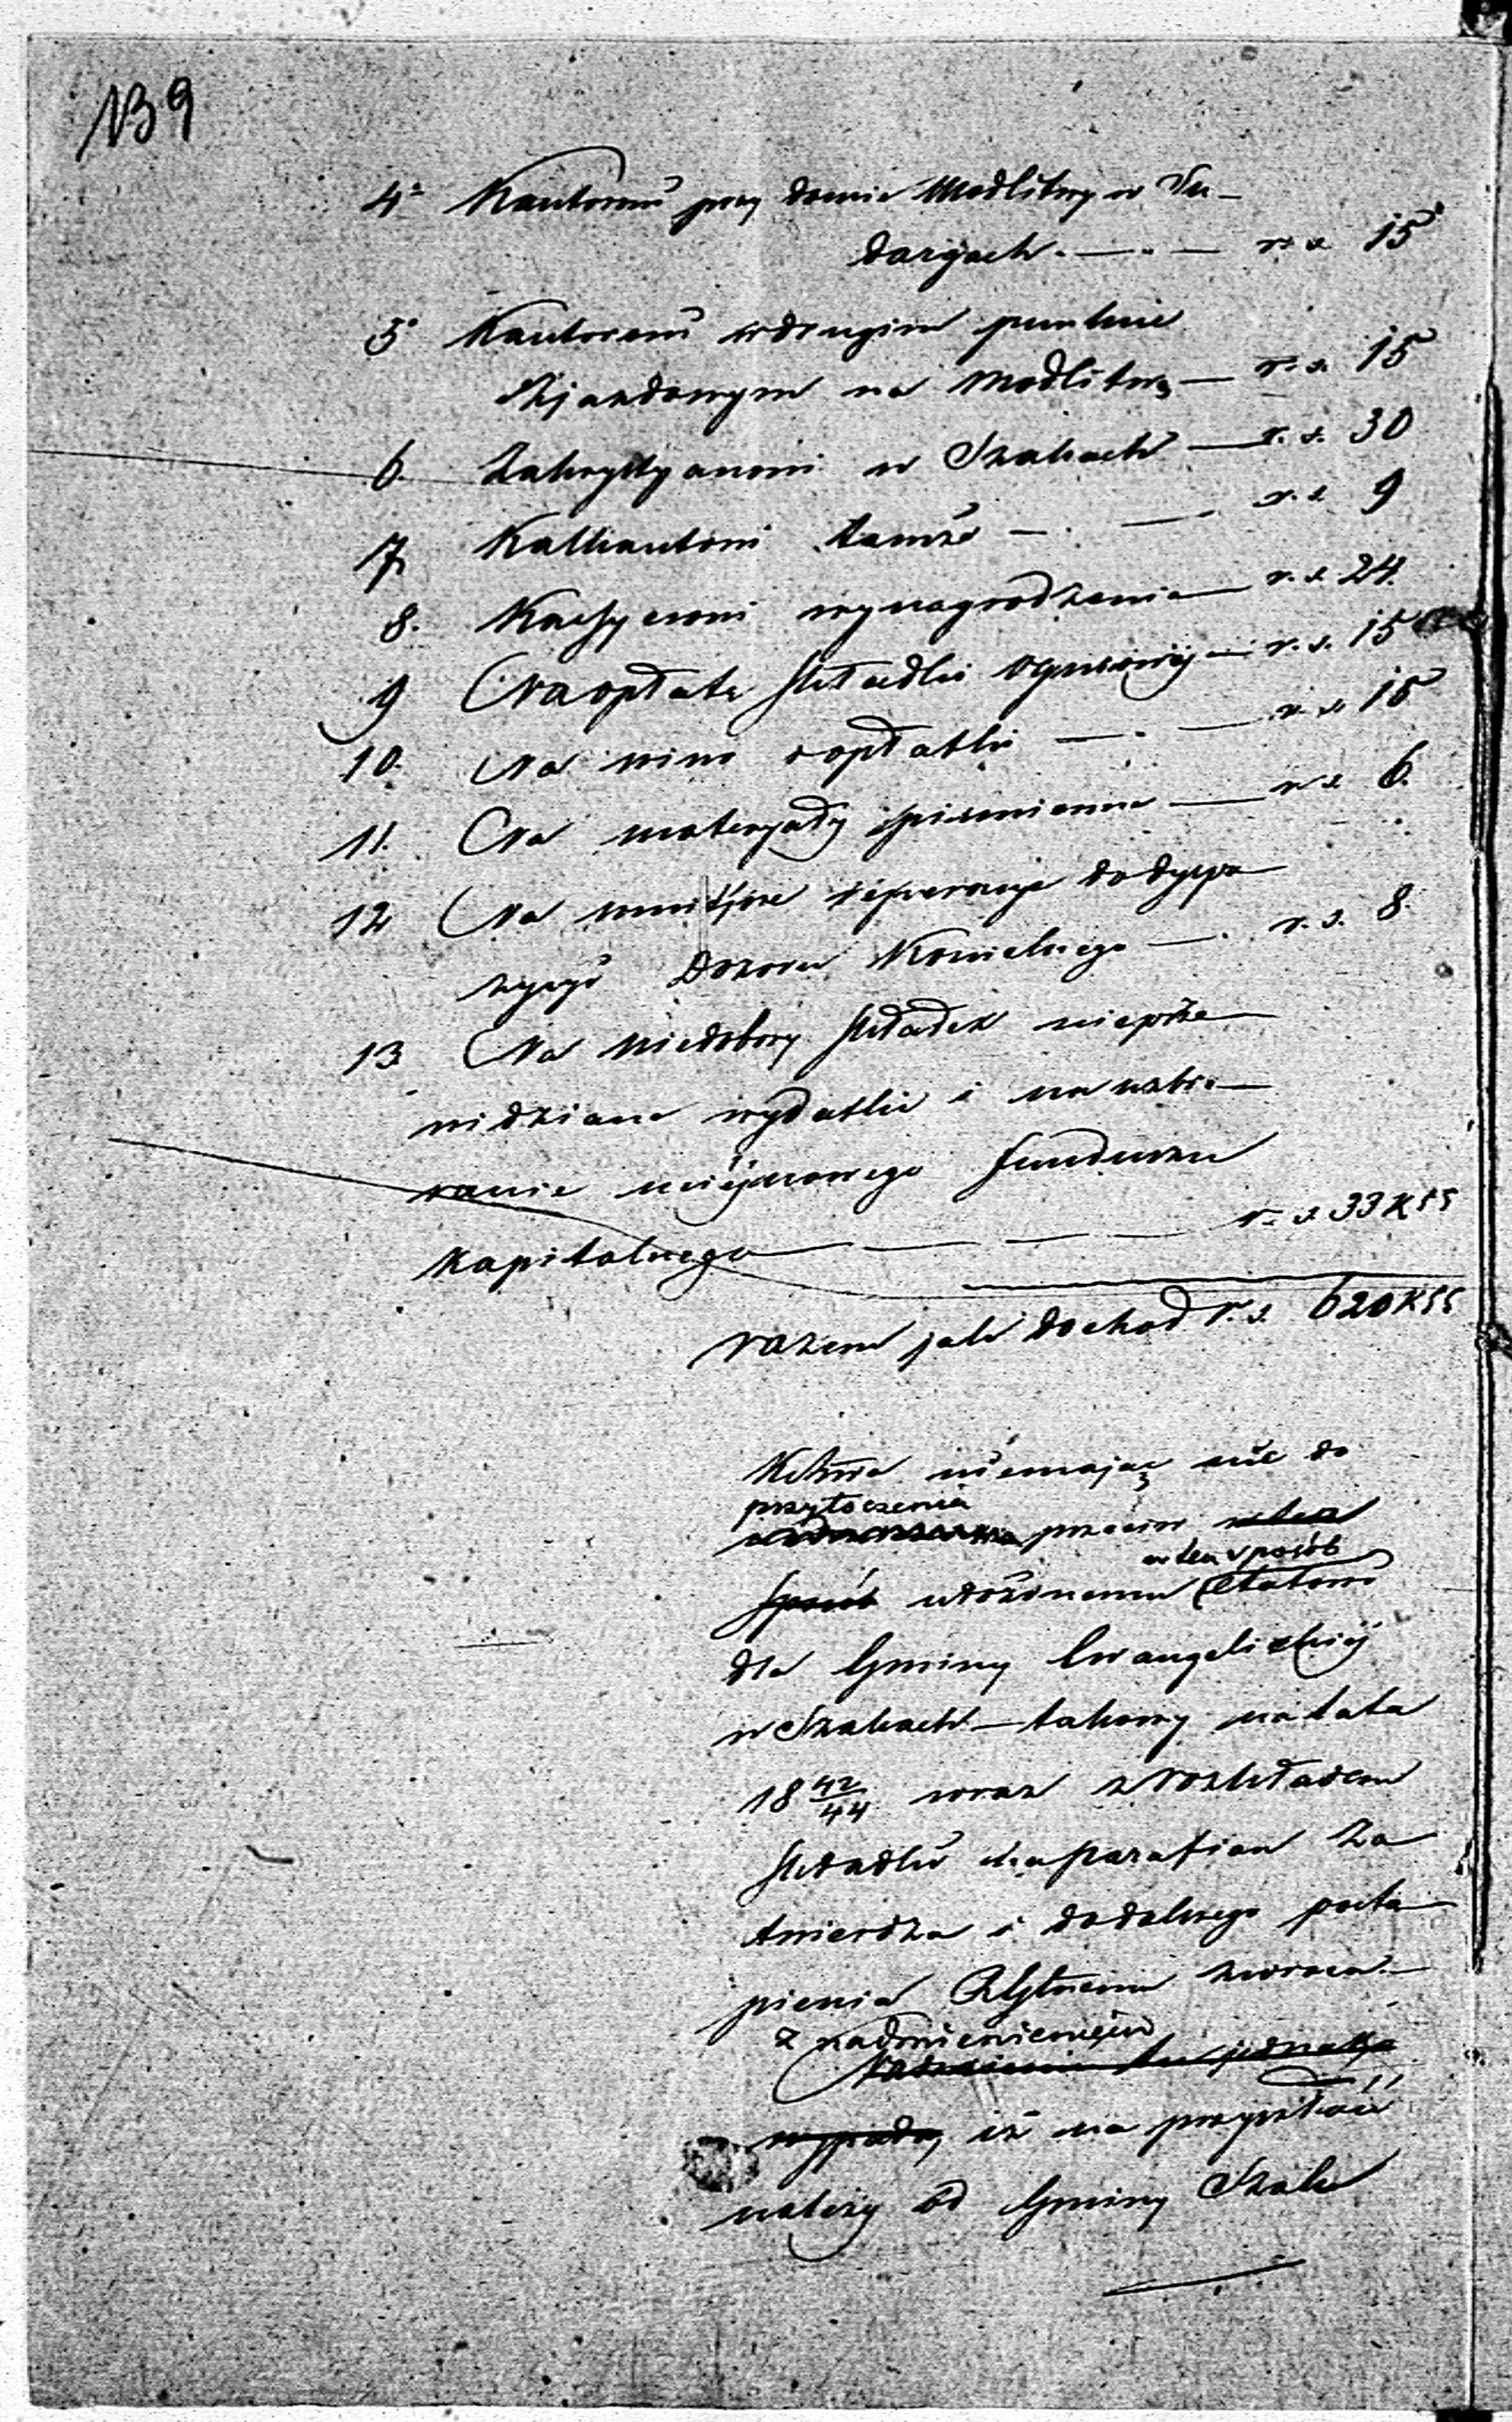 139
4° Kantorowi przy domie Modlitwy w Su-
dargach. — . — r. s. 15
5° Kantorowi w drugim punkcie
Zjazdowym na Modlitwę — r. s. 15
6. Zakrystyanowi w Szakach — r. s. 30
7. Kalkantowi tamże — . — r. s. 9
8. Kassyerowi wynagrodzenia — r. s. 24.
9 Na opłatę składki ogniowéj — r. s. 15
10. Na wino i opłatki — . — r. s. 15
11. Na materyały piśmienne — r. s. 6.
12 Na mniejsze reperacyje do dyspo
zycyi Dozoru Kościelnego — . r. s. 8.
13 Na niedobory składek nieprze
widziane wydatki i na uzbie-
ranie miejscowego funduszu
Kapitalnego — — — — r. s. 33 K 55
razem jak dochod r. s. 620 K 55
niemając nic do
przytoczenia
przeciw w ten
w ten sposób
sposób ułożonemu Etatowi
dla Gminy Ewangelickiéj
w Szakach — takowy na lata
18 42/44 wraz z rozkładem
składki na parafian za
twierdza i do dalszego postą
pienia zwraca. —
z nadmienieniem
jednakże
wypada, iż na przyszłość
należy od Gminy Szaki